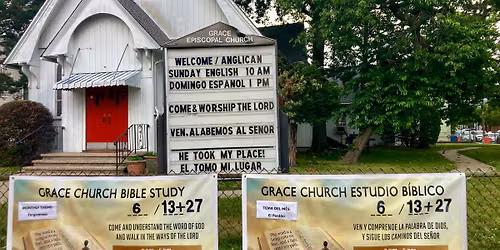 GRACE
EPISCOPAL CHURCH
WELCOME / ANGLICAN
SUNDAY ENGLISH 10 AM
DOMINGO ESPANOL 1 PM
COME & WORSHIP THE LORD
VEN, ALABEMOS AL SENOR
HE TOOK MY PLACE!
EL TOMO MI LUGAR
GRACE CHURCH BIBLE STUDY
MONTHLY THEME
Forgiveness
6 / 13+27
COME AND UNDERSTAND THE WORD OF GOD
AND WALK IN THE WAYS OF THE LORD
GRACE CHURCH ESTUDIO BÍBLICO
TEMA DEL MES
El Perdón
6 / 13+27
VEN Y COMPRENDE LA PALABRA DE DIOS,
Y SIGUE LOS CAMINOS DEL SEÑOR